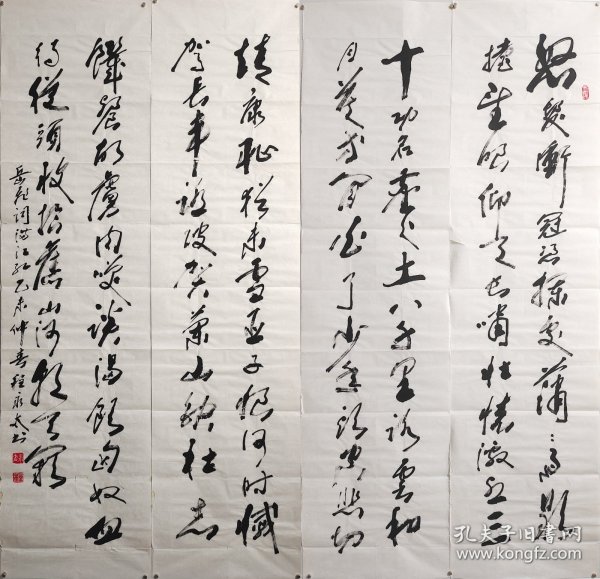 怒髮衝冠凭欄處瀟〻雨歇
擡望眼仰天長嘯壯懷激烈三
十功名塵與土八千里路雲和
月莫等閑白了少年頭空悲切
靖康耻猶未雪臣子恨何時
駕長車踏破賀蘭山缺壯志
饑餐胡虜肉笑談渴飲匈奴血
待從頭收拾舊山河朝天闕
岳飛詞滿江紅乙未仲春程永
孔夫子旧書网
www.kongfz.com